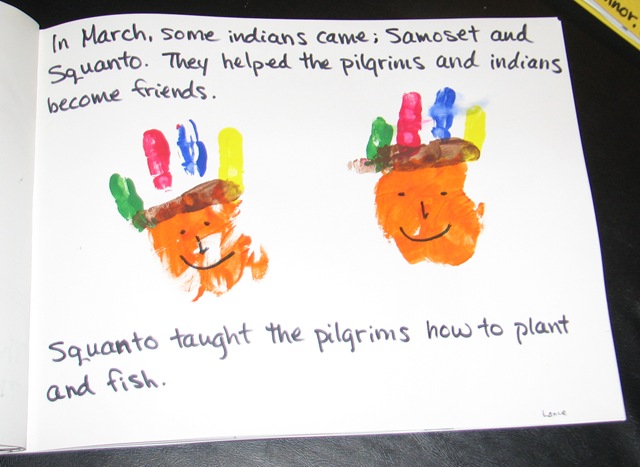 In March, some indians came; Samoset and
Squanto. They helped the pilgrims and indians
become friends.
Squanto taught the pilgrims how to plant
and fish.
Lance